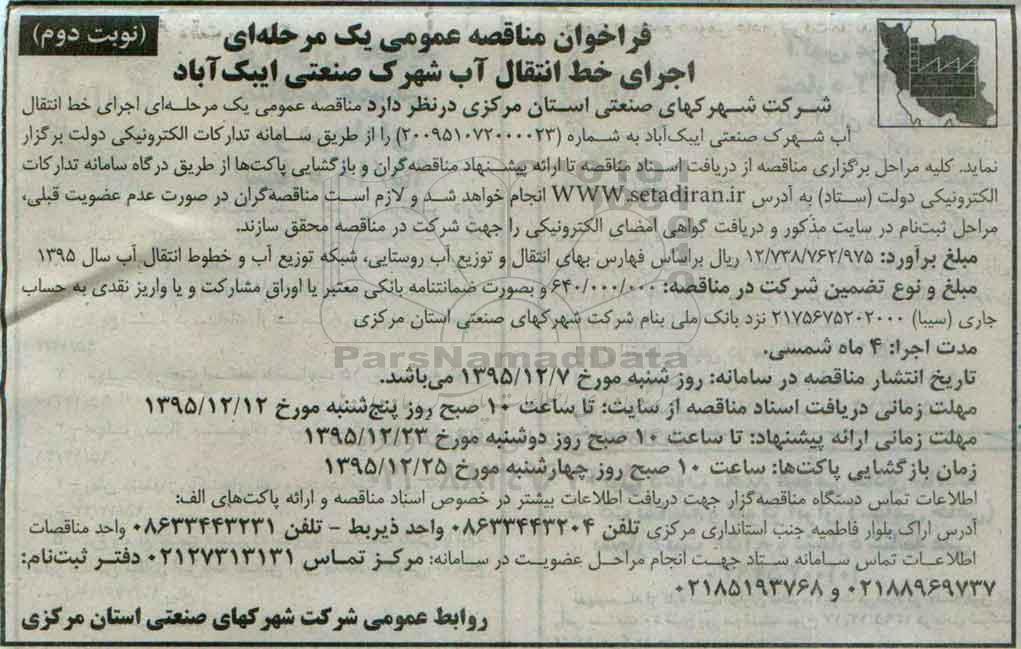 (نوبت دوم)
فراخوان مناقصه عمومی یک مرحله‌ای
اجرای خط انتقال آب شهرک صنعتی ایبک‌آباد
شرکت شهرکهای صنعتی استان مرکزی درنظر دارد مناقصه عمومی یک مرحله‌ای اجرای خط انتقال
آب شهرک صنعتی ایبک‌آباد به شماره (۲۰۰۹۵۱۰۷۲۰۰۰۰۲۳) را از طریق سامانه تدارکات الکترونیکی دولت برگزار
نماید. کلیه مراحل برگزاری مناقصه از دریافت اسناد مناقصه تا ارائه پیشنهاد مناقصه‌گران و بازگشایی پاکت‌ها از طریق درگاه سامانه تدارکات
الکترونیکی دولت (ستاد) به آدرس WWW.setadiran.ir انجام خواهد شد و لازم است مناقصه‌گران در صورت عدم عضویت قبلی،
مراحل ثبت‌نام در سایت مذکور و دریافت گواهی امضای الکترونیکی را جهت شرکت در مناقصه محقق سازند.
مبلغ برآورد: ۱۲/۷۳۸/۷۶۲/۹۷۵ ریال براساس فهارس بهای انتقال و توزیع آب روستایی، شبکه توزیع آب و خطوط انتقال آب سال ۱۳۹۵
مبلغ و نوع تضمین شرکت در مناقصه: ۶۴۰/۰۰۰/۰۰۰ و بصورت ضمانتنامه بانکی معتبر یا اوراق مشارکت و یا واریز نقدی به حساب
جاری (سیبا) ۲۱۷۵۶۷۵۲۰۲۰۰۰ نزد بانک ملی بنام شرکت شهرکهای صنعتی استان مرکزی
مدت اجرا: ۴ ماه شمسی.
تاریخ انتشار مناقصه در سامانه: روز شنبه مورخ ۱۳۹۵/۱۲/۷ می‌باشد.
مهلت زمانی دریافت اسناد مناقصه از سایت: تا ساعت ۱۰ صبح روز پنج‌شنبه مورخ ۱۳۹۵/۱۲/۱۲
مهلت زمانی ارائه پیشنهاد: تا ساعت ۱۰ صبح روز دوشنبه مورخ ۱۳۹۵/۱۲/۲۳
زمان بازگشایی پاکت‌ها: ساعت ۱۰ صبح روز چهارشنبه مورخ ۱۳۹۵/۱۲/۲۵
اطلاعات تماس دستگاه مناقصه‌گزار جهت دریافت اطلاعات بیشتر در خصوص اسناد مناقصه و ارائه پاکت‌های الف:
آدرس اراک بلوار فاطمیه جنب استانداری مرکزی تلفن ۰۸۶۳۳۴۴۳۲۰۴ واحد ذیربط - تلفن ۰۸۶۳۳۴۴۳۲۳۱ واحد مناقصات
اطلاعات تماس سامانه ستاد جهت انجام مراحل عضویت در سامانه: مرکز تماس ۰۲۱۲۷۳۱۳۱۳۱ دفتر ثبت‌نام:
۰۲۱۸۸۹۶۹۷۳۷ و ۰۲۱۸۵۱۹۳۷۶۸
روابط عمومی شرکت شهرکهای صنعتی استان مرکزی
ParsNamadData